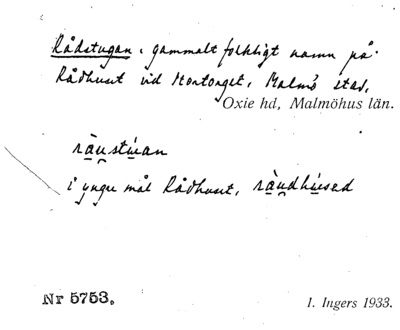 Rådstugan, gammalt folkligt namn på
Rådhuset vid Stortorget, Malmö stad,
Oxie hd, Malmöhus län.
ràu̯stu̇an
i yngre mål Rådhuset, ràu̯dhu̇sed
Nr 5753.
I. Ingers 1933.